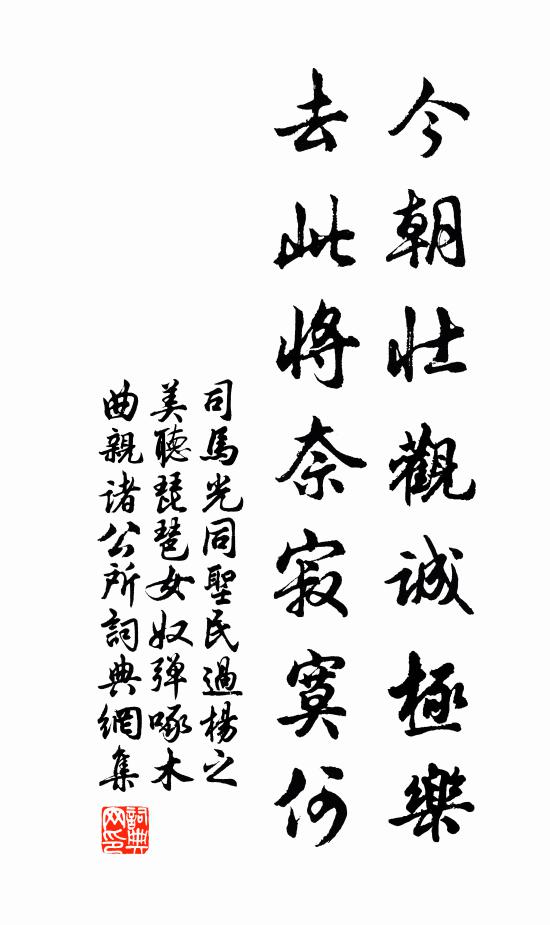 今朝壯觀誠極樂
去此將奈寂寞何
司馬光同聖民過楊之
美聽琵琶女奴弹啄木
曲親诸公所詞典網集
詞典
网印